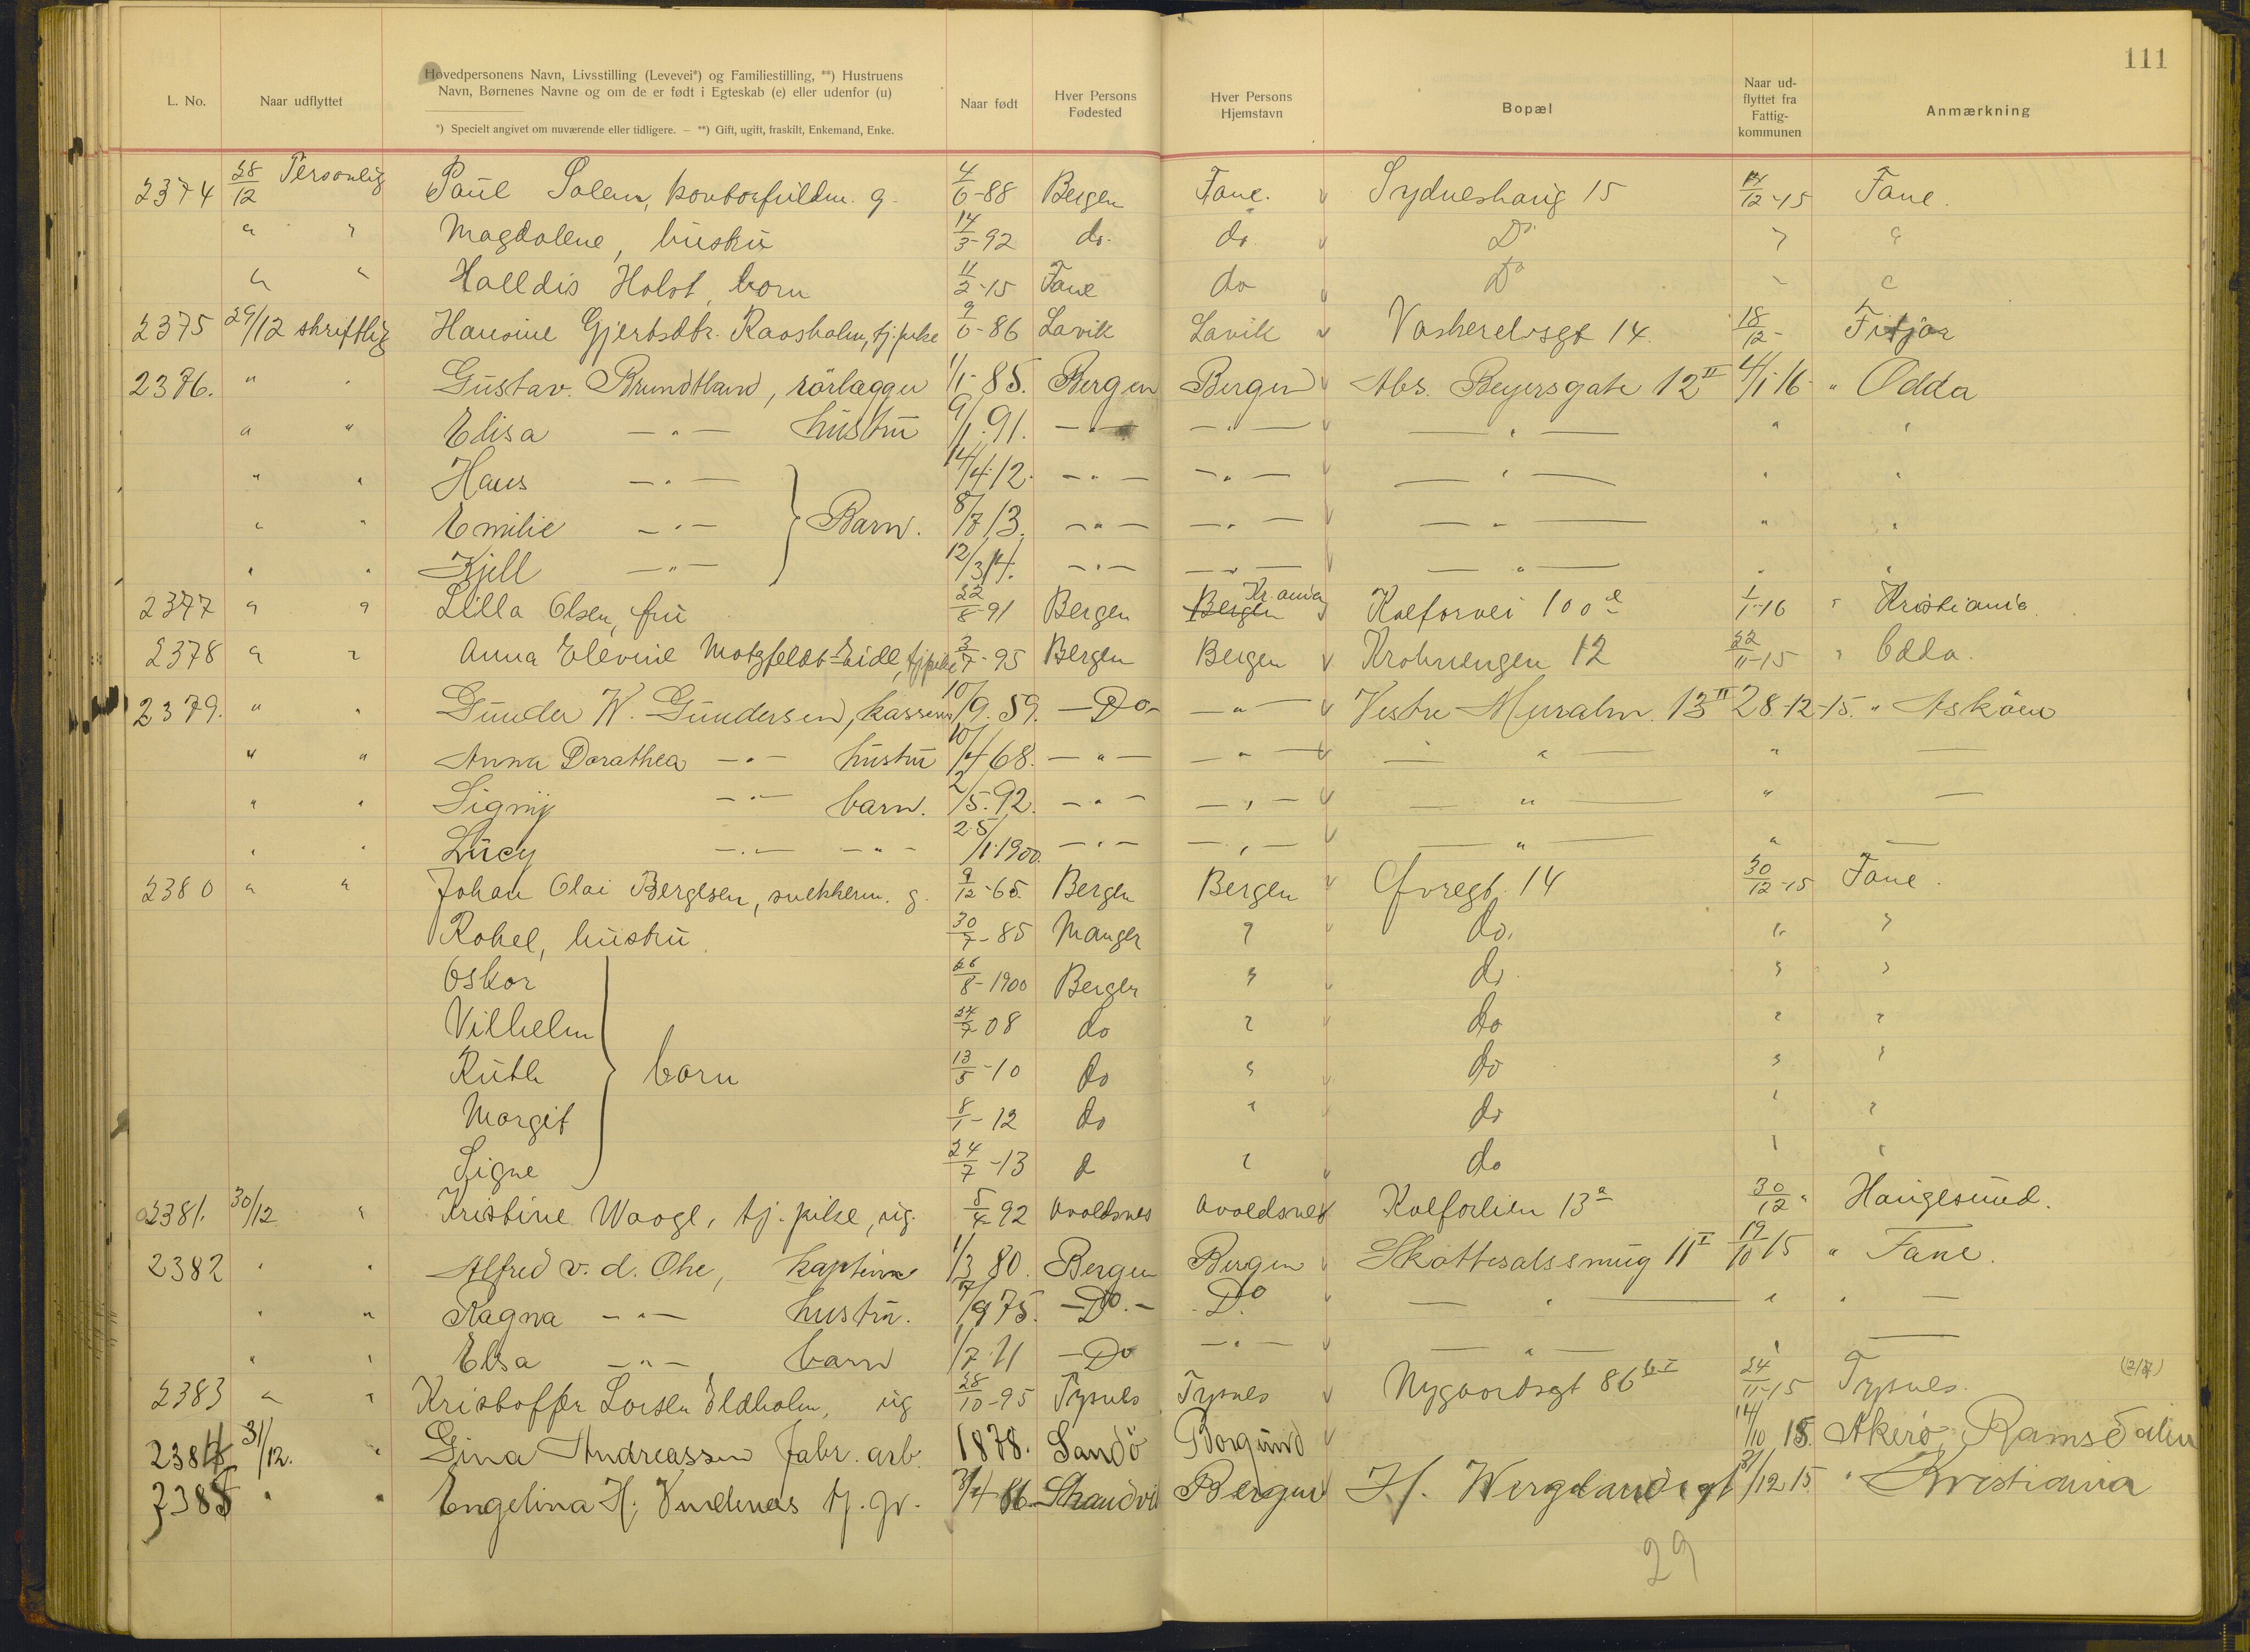 111
L. No. Naar udflyttet Hovedpersonens Navn, Livsstilling (Levevei*) og Familiestilling, **) Hustruens Navn, Børnenes Navne og om de er født i Egteskab (e) eller udenfor (u) Naar født Hver Persons Fødested Hver Persons Hjemstavn Bopæl Naar ud-flyttet fra Fattig-kommunen Anmærkning
*) Specielt angivet om nuværende eller tidligere. — **) Gift, ugift, fraskilt, Enkemand, Enke.
2374 28/12 Personlig Paul Solem, kontorfuldm. g. 4/6-88 Bergen Fane. Sydneshaug 15 12-15 Fane.
" " Magdalene, hustru 14/3-92 do. do. Do " "
" " Halldis Holst, barn 11/2-15 Fane do Do " "
2375 29/12 skriftlig Hansine Gjertsdtr. Raasholm, tj.pike 9/6-86 Lavik Lavik Vaskerelvsgt 14. 18/12- Fitjar
2376. " " Gustav. Brundtland, rörlægger 1/1-85. Bergen Bergen Abs. Beyersgate 12 II 4/1-16 " Odda
" " Elisa —"— hustru 9/1.91. —"— —"— —"— " "
" " Hans —"— 14/4.12. —"— —"— —"— " "
" " Emilie —"— Barn. 8/7 13. —"— —"— —"— " "
" " Kjell —"— 12/3 14. —"— —"— —"— " "
2377 " " Lilla Olsen, fru 22/8-91 Bergen Bergen Kr.ania Kalfarvei 100 1/1-16 " Kristiania.
2378 " " Anna Elevine Motzfeldt-Eide, tj.pike 3/7-95 Bergen Bergen Krohnengen 12 22/11-15 " Odda.
2379. " " Gunder W. Gundersen, kasserer 10/9.59. —Do— —"— Vestre Muralm. 13 II 28-12-15. " Asköen
" " Anna Dorathea —"— hustru 10/4 68. —"— —"— —"— " —
" " Signy —"— barn. 2/5.92. —"— —"— —"— " —
" " Lucy —"— —"— 25/1.1900. —"— —"— —"— " —
2380 " " Johan Olai Bergesen, snekkerm. g. 9/12-65. Bergen Bergen Øvregt. 14 30/12-15 Fane.
Rakel, hustru. 30/7-85 Manger " do. " "
Oskar 26/8-1900 Bergen " do. " "
Vilhelm 24/7 08 do " do " "
Ruth barn 13/5-10 do " do " "
Margit 8/1-12 do " do " "
Signe 24/7-13 d " do " "
2381. 30/12 " Kristine Waage, tj.pike, ug. 5/4 92 Avaldsnes Avaldsnes Kalfarlien 13a 30/12 " Haugesund.
2382 " " Alfred v.d. Ohe, kaptein 1/3 80. Bergen Bergen Skottesalssmug 11 I 19/10 15 " Fane.
" " Ragna —"— hustru. 7/9 75. —Do.— Do —"— " " —
" " Elsa —"— barn 1/7.11 —Do —"— —"— " —
2383 " " Kristoffer Larsen Eldholm, ug 28/10-95 Tysnes Tysnes Nygaardsgt 86 24/11-15 Tysnes.
2384 31/12. " Gina Andreassen Fabr. arb. 1878. Sandö Borgund 14/10 15. Akerö, Ramsdalen
2385 " " Engelina H. tj. pi. 3/4 86. Bergen H. Wergelandsgt 31/12 15. " Kristiania
29